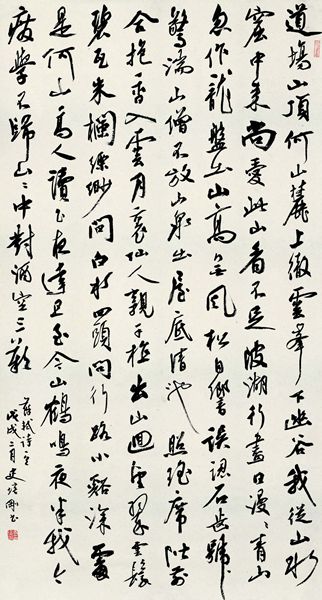 道場山頂何山麓上徹雲峯下幽谷我從山水
窟中來尚愛此山看不足陂湖行盡白漫〻青山
忽作龍盤山高無風松自響誤認石齒號
驚湍山僧不放山泉出屋底清池照瑤席階前
合抱香入雲月裏仙人親手植出山迴望翠雲鬟
碧瓦朱欄縹緲間白水田頭問行路小谿深處
是何山高人讀書夜達旦至今山鶴鳴夜半我今
廢學不歸山〻中對酒空三歎
蘇軾詩之
戊戌二月史